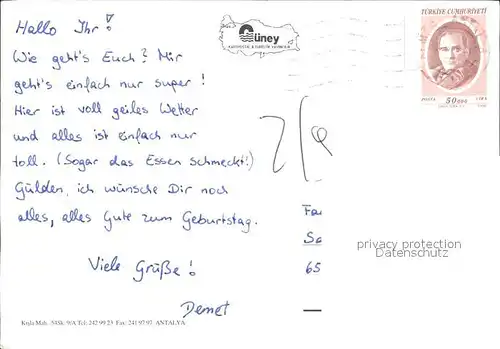 Hallo Ihr!
Wie geht's Euch? Mir
geht's einfach nur super!
Hier ist voll geiles Wetter
und alles ist einfach nur
toll. (Sogar das Essen schmeckt!)
Gülden, ich wünsche Dir noch
alles, alles Gute zum Geburtstag.
Viele Grüße!
Demet
Güney
TÜRKİYE CUMHURİYETİ
POSTA 50000 LIRA
Fa
Sc
65
privacy protection
Datenschutz
Kışla Mah. 54Sk. 9/A Tel: 242 99 23 Fax: 241 97 97 ANTALYA